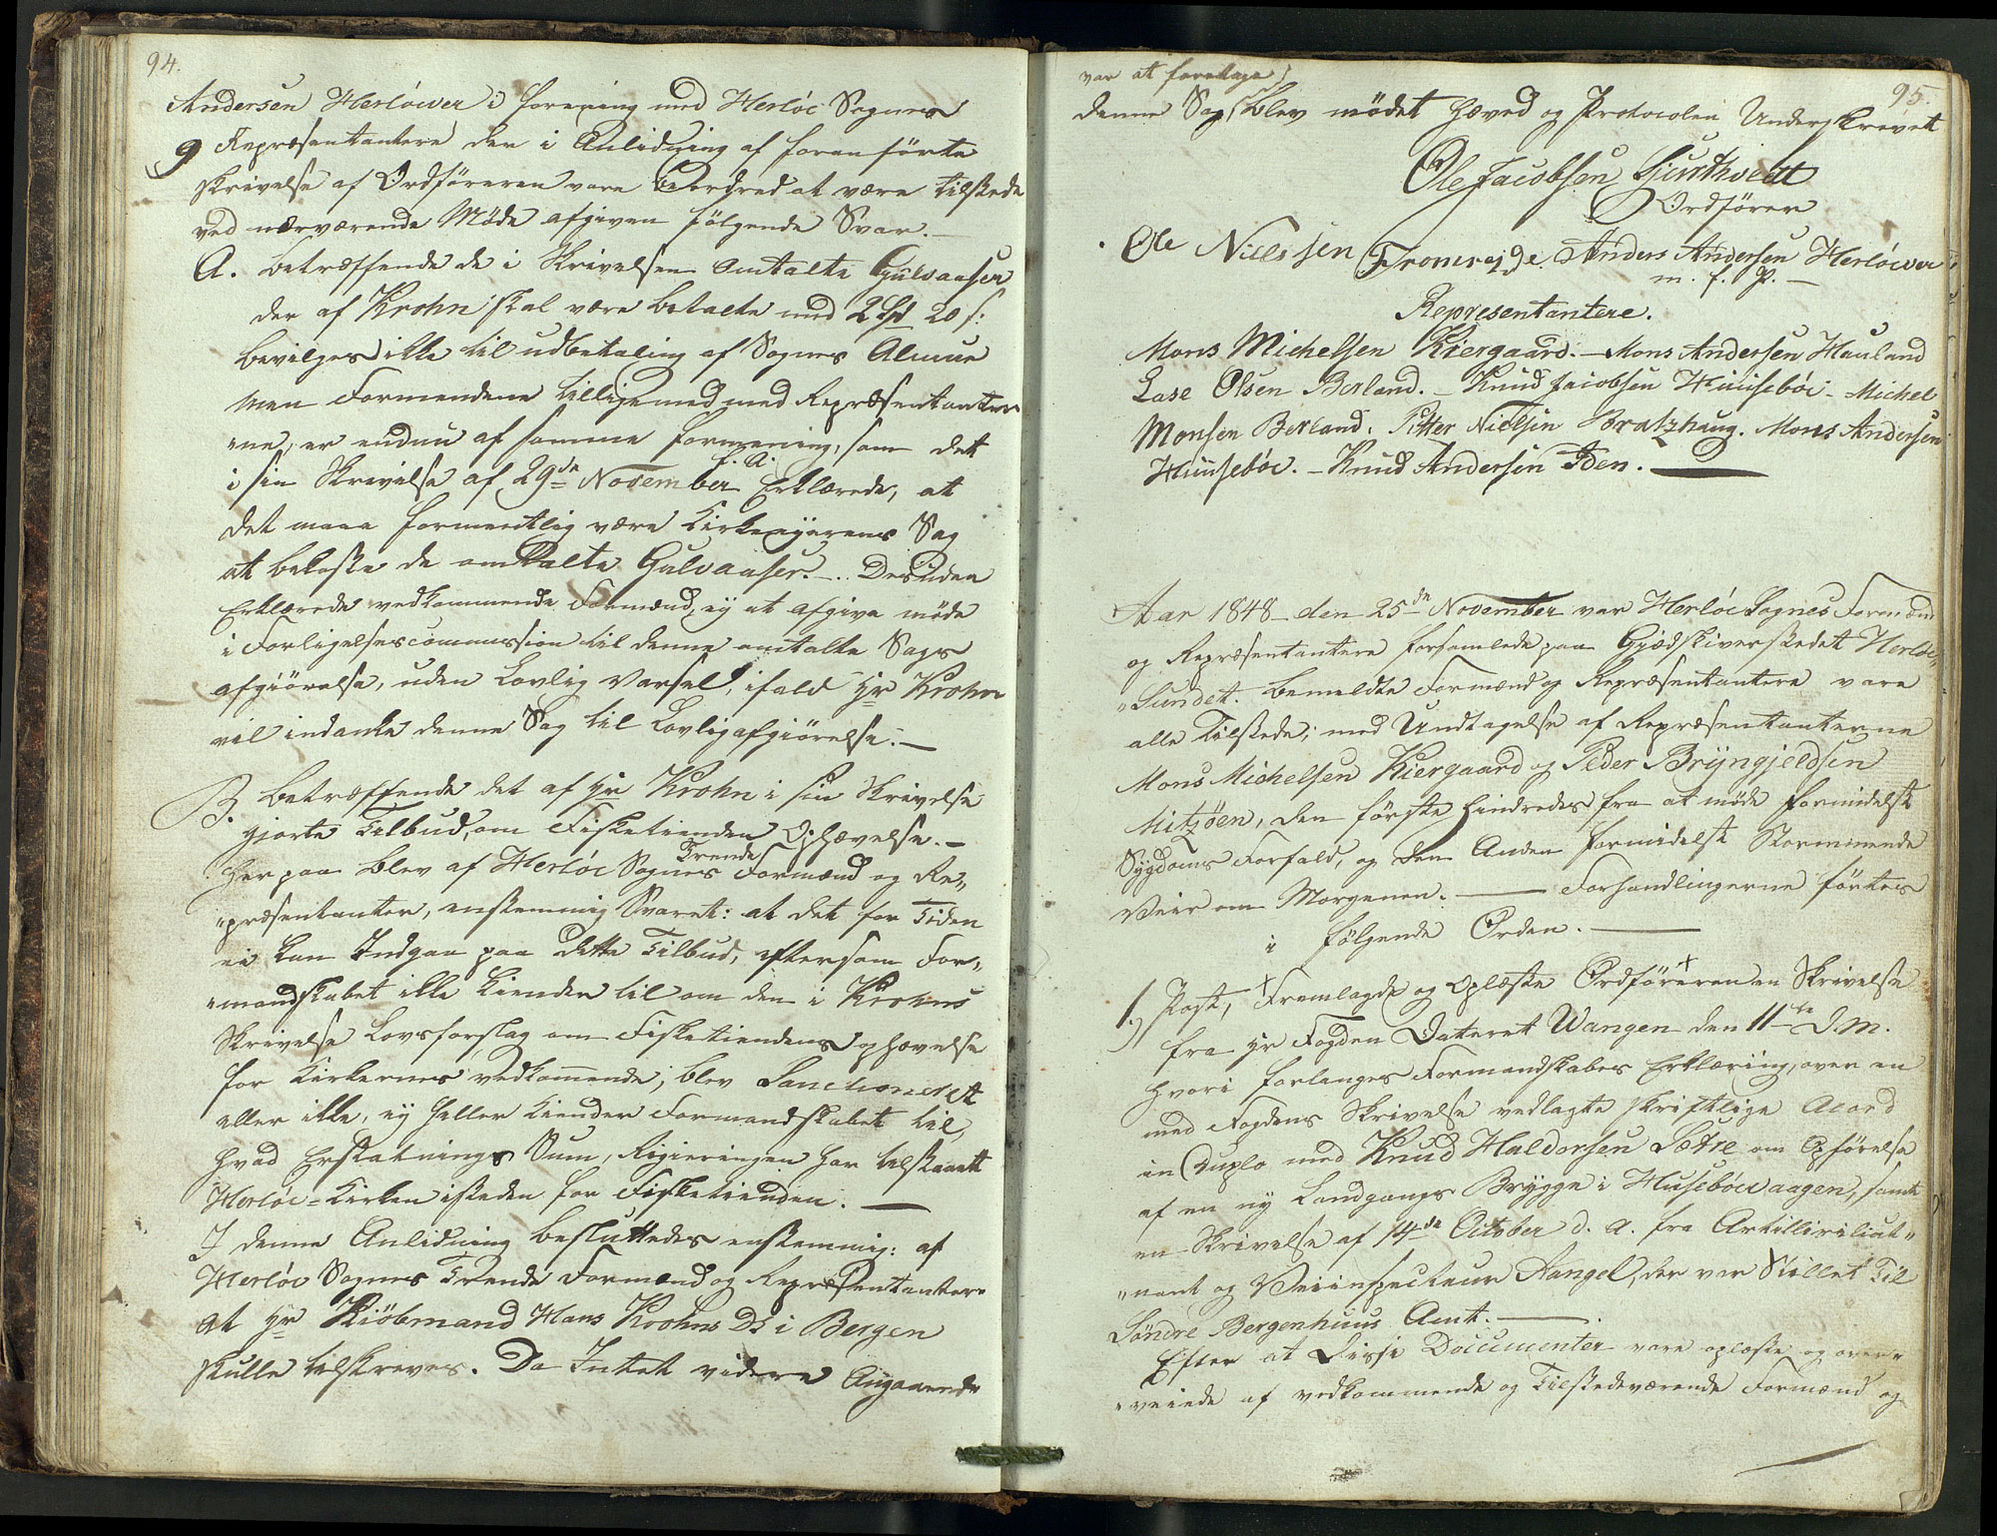 94.
Andersen Herlöever i forening med Herlöe Sognes
9 Repræsentantere der i Anledning af foranförte
skrivelse af Ordföreren vare beordred at være tilstede
ved nærværende Møde afgiven følgende Svar. —
A. betræffende de i Skrivelsen omtalte Gulvaaser
der af Krohn skal være betalte med 2 Spd 20 s:
bevilges ikke til udbetaling af Sognes Almue
men Formendene tilligemed med Repræsentanter
ne, er endnu af samme formening, som det
i sin Skrivelse af 29de November f. A. Erklærede, at
det maa formentlig være Kirkeejerens Sag
at bekoste de omtalte Gulvaaser. — Desuden
Erklærede vedkommende Formænd, ej at afgive møde
i Forligelsescommission til denne omtalte Sags
afgiörelse, uden Lovlig Varsel, ifald Hr Krohn
vil indanke denne Sag til Lovlig afgiörelse. —
B. betræffende det af Hr Krohn i sin Skrivelse
gjorte Tilbud, om Fisketiendens Ophævelse. —
Herpaa blev af Herlöe Sognes Trende Formænd og Re„
„præsentanter, enstemmig Svaret: at det for Tiden
ei kan Indgaa paa dette Tilbud, eftersom For„
„mandskabet ikke kiender til om den i Krohns
Skrivelse Lovforslag om Fisketiendens ophævelse
for Kirkernes vedkommende, blev Sanctioneret
eller ikke, ej heller kiender Formandskabet til,
hvad Erstatnings Sum, Regieringen har tilstaaet
Herlöe-Kirken isteden for Fisketienden. —
I denne Anledning besluttedes enstemmig: af
Herlöe Sognes Trende Formænd og Repræsentanter
at Hr Kiöbmand Hans Krohn DS i Bergen
skulle tilskrives. Da Intet videre Angaaende
95.
var at foretage)
denne Sag, blev mödet hæved og Protocolen Underskrevet
Ole Jacobsen Sjurthvedt
Ordförer
Ole Nielssen Fromreide. Anders Andersen Herlöever
m. f. P. —
Representantere.
Mons Michelsen Kiergaard. — Mons Andersen Hauland
Lase Olsen Berland. — Knud Jacobsen Huuseböe - Michel
Monsen Berland. Petter Nielsen Bratzhaug. Mons Andersen
Huusebøe. — Knud Andersen Iden. —
Aar 1848 den 25de November var Herlöe Sognes Formænd
og Repræsentantere forsamlede paa Giæstgiverstedet Herlöe„
„Sundet. bemeldte Formænd og Repræsentantere vare
alle Tilstede, med Undtagelse af Repræsentanterne
Mons Michelsen Kiergaard og Peder Bryngjeldsen
Mitzöen, den förste hindredes fra at møde formedelst
Sygdoms Forfald, og den Anden formedelst Stormende
Veir om Morgenen. — Forhandlingerne förtes
i fölgende Orden. —
1.) Post, Fremlagde og Oplæste Ordföreren en Skrivelse
fra Hr Fogden Dateret Wangen den 11te d. M.
hvori forlanges Formandskabes Erklæring, over en
med Fogdens Skrivelse vedlagte skriftlige Acord
in Duplo med Knud Haldorsen Sætre om Opförelse
af en ny Landgangs Brygge i Husebövaagen, samt
en Skrivelse af 14de October d. A. fra Artilleriliut„
„nant og Veiinspecteur Hangel, der var Stillet Til
Söndre Bergenhuus Amt. —
Efter at Disse Documenter vare oplæste og over„
„veiede af vedkommende og Tilstedeværende Formænd og